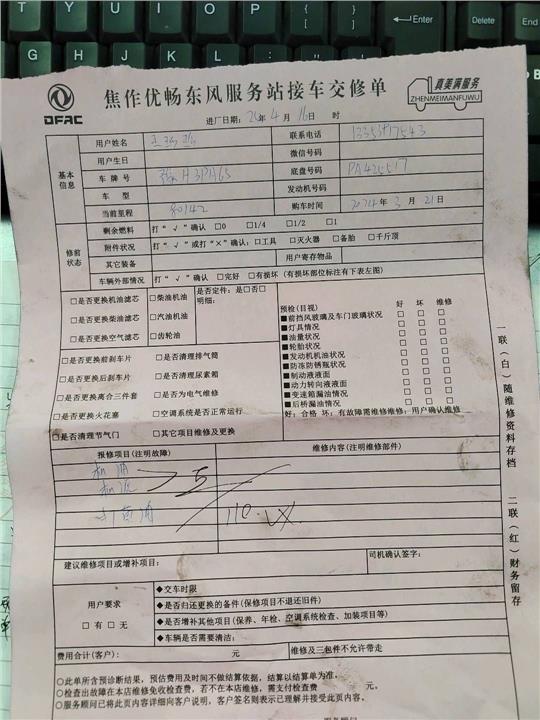 T Y U I O P
Enter
Delete
End
G H J K L
DFAC
焦作优畅东风服务站接车交修单
真美满服务
ZHENMEIMANFUWU
进厂日期：24年4月16日 时
基本信息
用户姓名
联系电话
用户生日
微信号码
车牌号
底盘号码 PA425517
车型
发动机号码
当前里程 80142
购车时间 2024年3月21日
修前状态
剩余燃料 打“√”确认 □0 □1/4 □1/2 □1
附件状况 打“√”或打“×”确认：□工具 □灭火器 □备胎 □千斤顶
其它装备
用户寄存物品
车辆外部情况 打“√”确认 □完好 □有损坏（有损坏部位标注有下表左图）
□是否更换机油滤芯 □柴油机油
是否定件：是□否□
明细：
□是否更换柴油滤芯 □汽油机油
□是否更换空气滤芯 □齿轮油
□是否更换前刹车片 □是否清理排气筒
□是否更换后刹车片 □是否清理尿素箱
□是否更换离合三件套 □是否为电气维修
□是否更换火花塞 □空调系统是否正常运行
□是否清理节气门 □其它项目维修及更换
预检（目视） 好 坏 维修
■前挡风玻璃及车门玻璃状况 □ □ □
■灯具情况 □ □ □
■油量状况 □ □ □
■轮胎状况 □ □ □
■发动机机油状况 □ □ □
■防冻防锈瓶状况 □ □ □
■制动液液面 □ □ □
■动力转向液液面 □ □ □
■变速箱漏油情况 □ □ □
■后桥漏油情况 □ □ □
好：合格 坏：有故障需维修维修：用户确认维修
报修项目（注明故障）
维修内容（注明维修部件）
机油
机滤
110.
建议维修项目或增补项目：
司机确认签字：
用户要求
□有 □无
◆交车时限
◆是否归还更换的备件（保修项目不退还旧件）
◆是否增补其他项目（保养、年检、空调系统检查、加装项目等）
◆车辆是否需要清洁：
费用合计（客户）： 元
维修及三包件不允许带走
○此单所含预诊断结果，预估费用及时间不做结算依据，结算以结算单为准．
○检查出故障在本店维修免收检查费，若不在本店维修，需支付检查费 元。
○服务顾问已将此页内容详细向客户说明。客户签名则表示已理解并接受此页内容。
一联（白）随维修资料存档
二联（红）财务留存